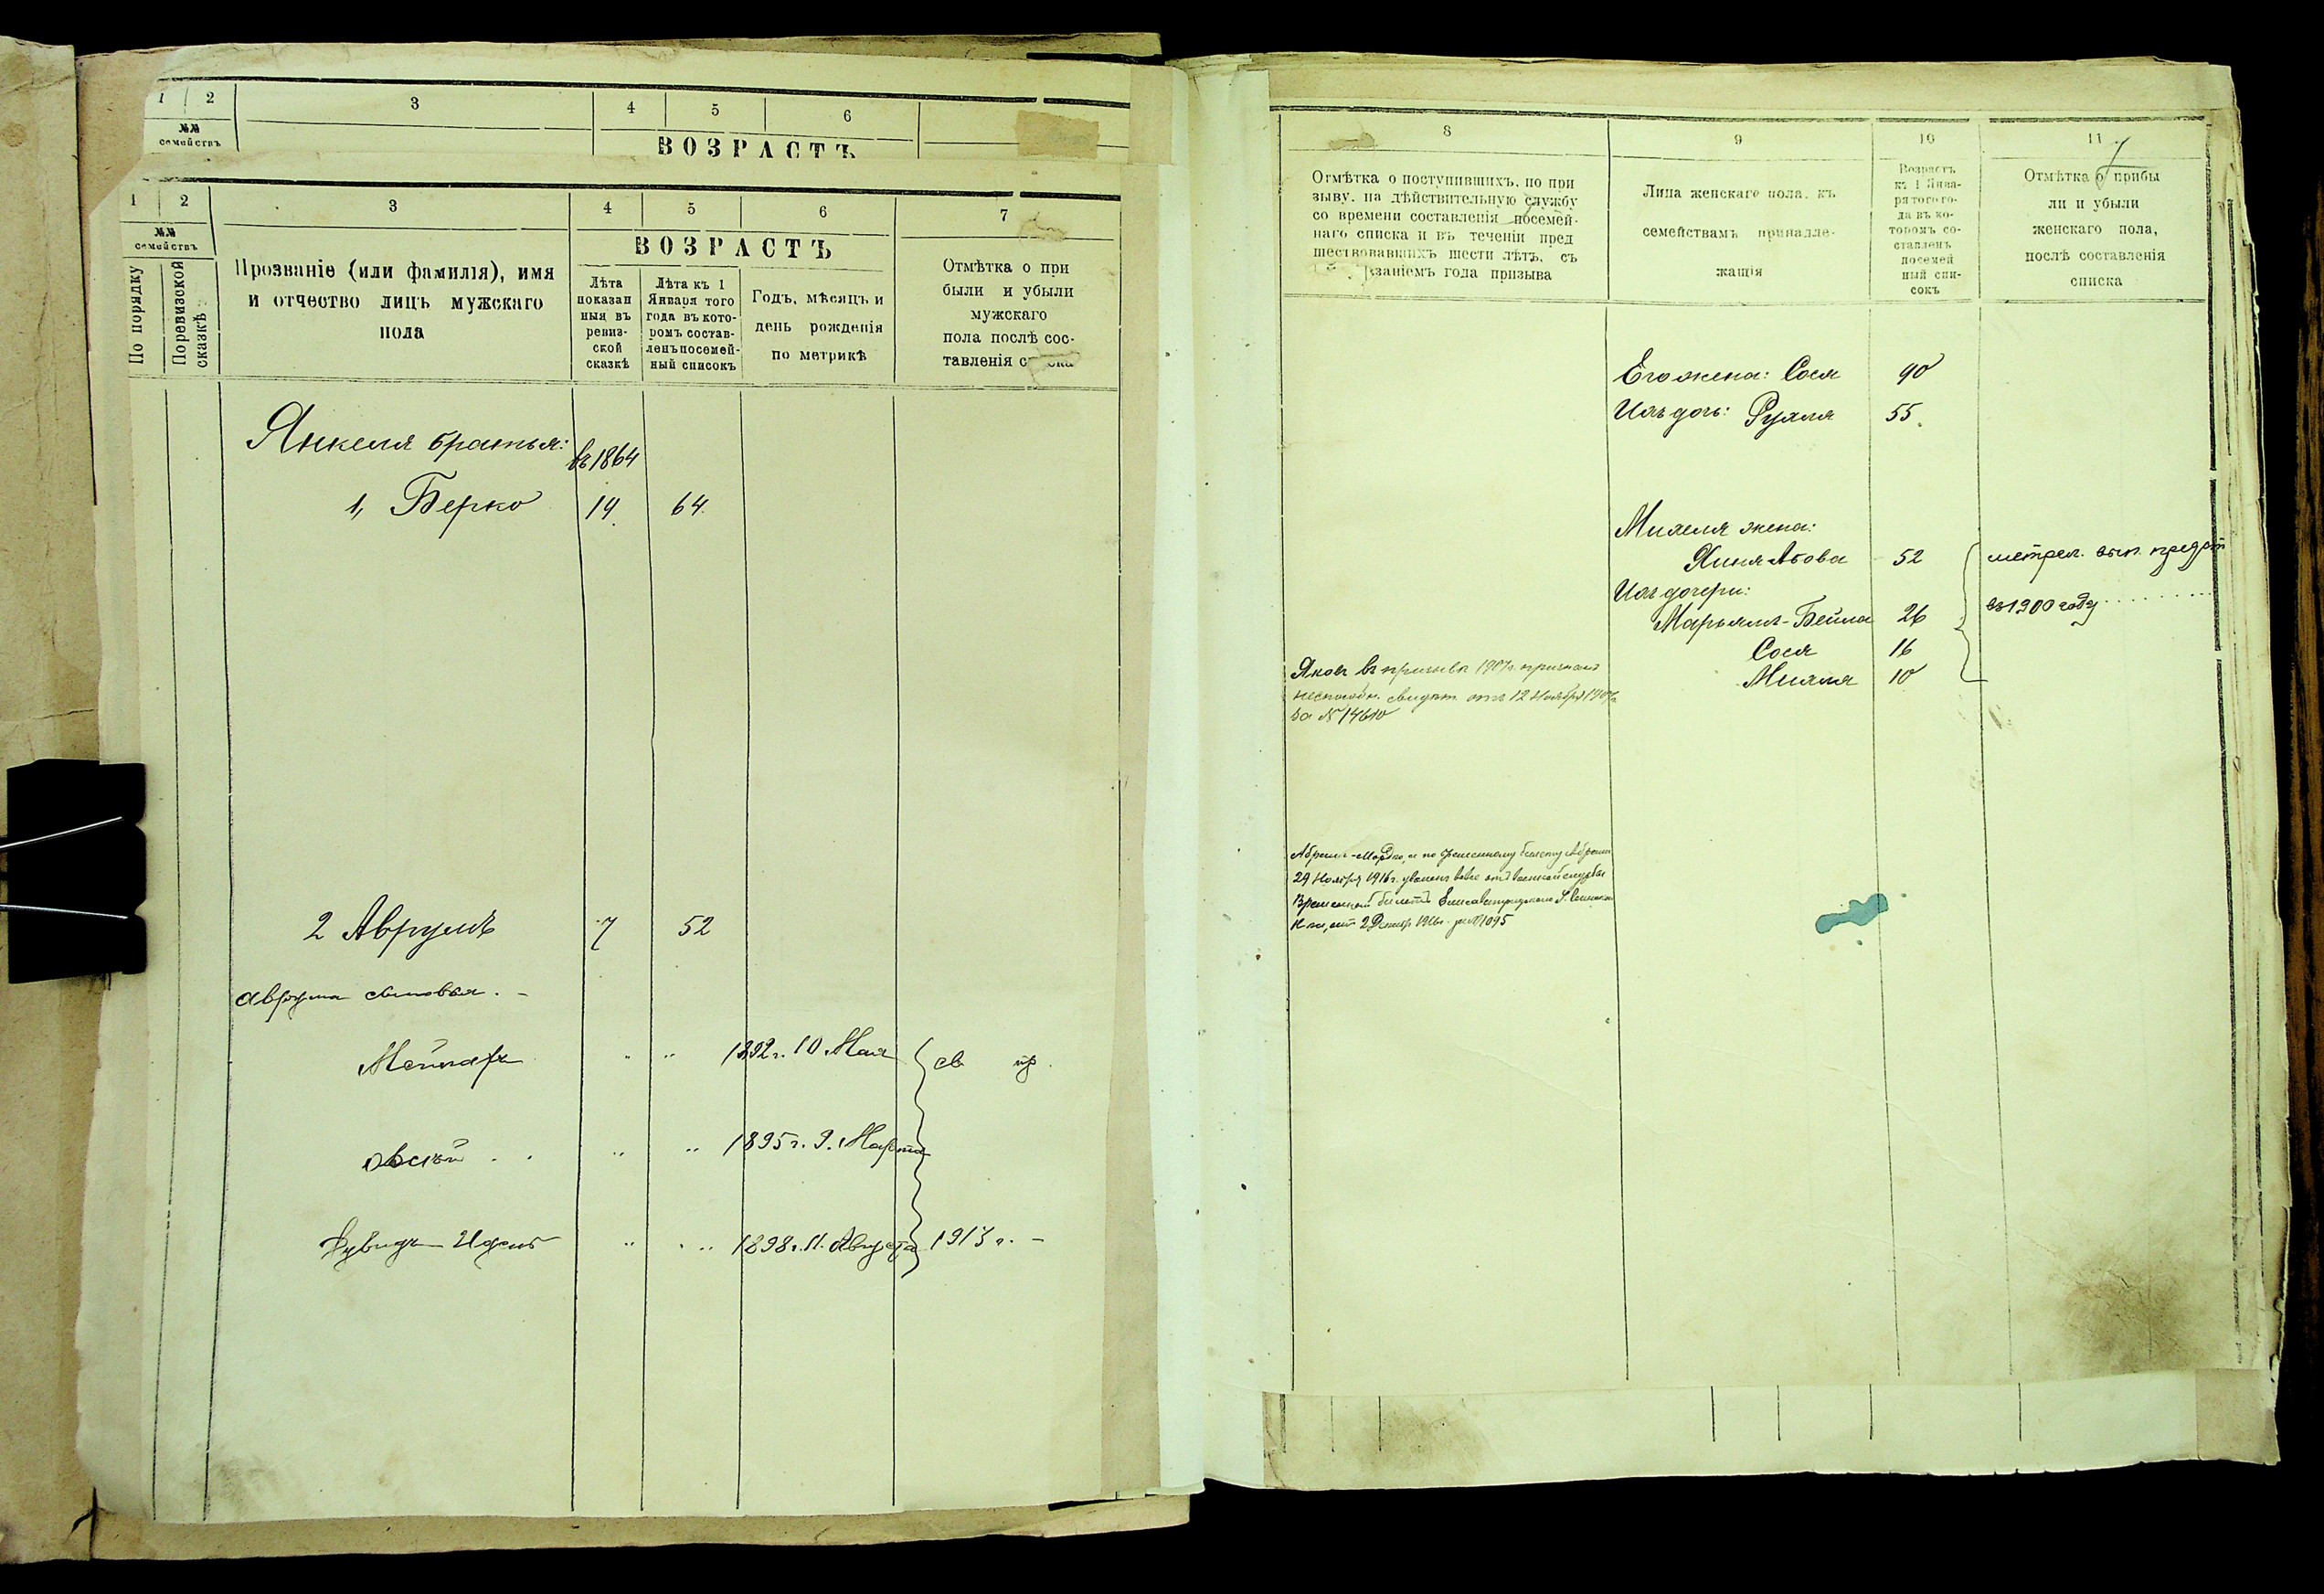 1 2 3 4 5 6
№№
семействъ
ВОЗРАСТЪ
1 2 3 4 5 6 7
№№
семействъ
По порядку
Поревизской
сказкѣ
Прозваніе (или фамилія), имя
и отчество лицъ мужскаго
пола
ВОЗРАСТЪ
Лѣта
показан
ныя въ
ревиз-
ской
сказкѣ
Лѣта къ 1
Января того
года въ кото-
ромъ состав-
ленъ посемей-
ный списокъ
Годъ, мѣсяцъ и
день рожденія
по метрикѣ
Отмѣтка о при
были и убыли
мужскаго
пола послѣ сос-
тавленія
Янкеля братья:
въ 1864
1, Берко 14 64
2 Аврумъ 7 52
Аврума сыновья . -
Мейлахъ " " 1892 г. 10 Мая св пр.
Овсей . . " " 1895 г. 9. Марта
Дувидъ-Идель " " 1898 г. 11. Августа 1913 г. -
8 9 10 11
Отмѣтка о поступившихъ, по при
зыву, на дѣйствительную службу
со времени составленія посемей-
наго списка и въ теченіи пред
шествовавшихъ шести лѣтъ, съ
указаніемъ года призыва
Лица женскаго пола, къ
семействамъ принадле-
жащія
Возрастъ
къ 1 Янва-
ря того го-
да въ ко-
торомъ со-
ставленъ
посемей
ный спи-
сокъ
Отмѣтка о прибы
ли и убыли
женскаго пола,
послѣ составленія
списка
Его жена: Сося 90
Ихъ дочь: Рухля 55.
Михеля жена:
Хиня Абова 52
Ихъ дочери:
Марьямъ-Бейла 26
Сося 16
Михля 10
въ 1900 году
въ призывъ 1907г. признанъ
неспособн. свидѣт. отъ 12 Ноября 1907г.
за № 14610
Абрамъ-Мордко, а по временному билету Абрамъ
29 Ноября 1916 г. уволенъ вовсе отъ военной службы
Временный билетъ Елисаветградскаго
отъ 2 Декабр 1916г. за № 1095